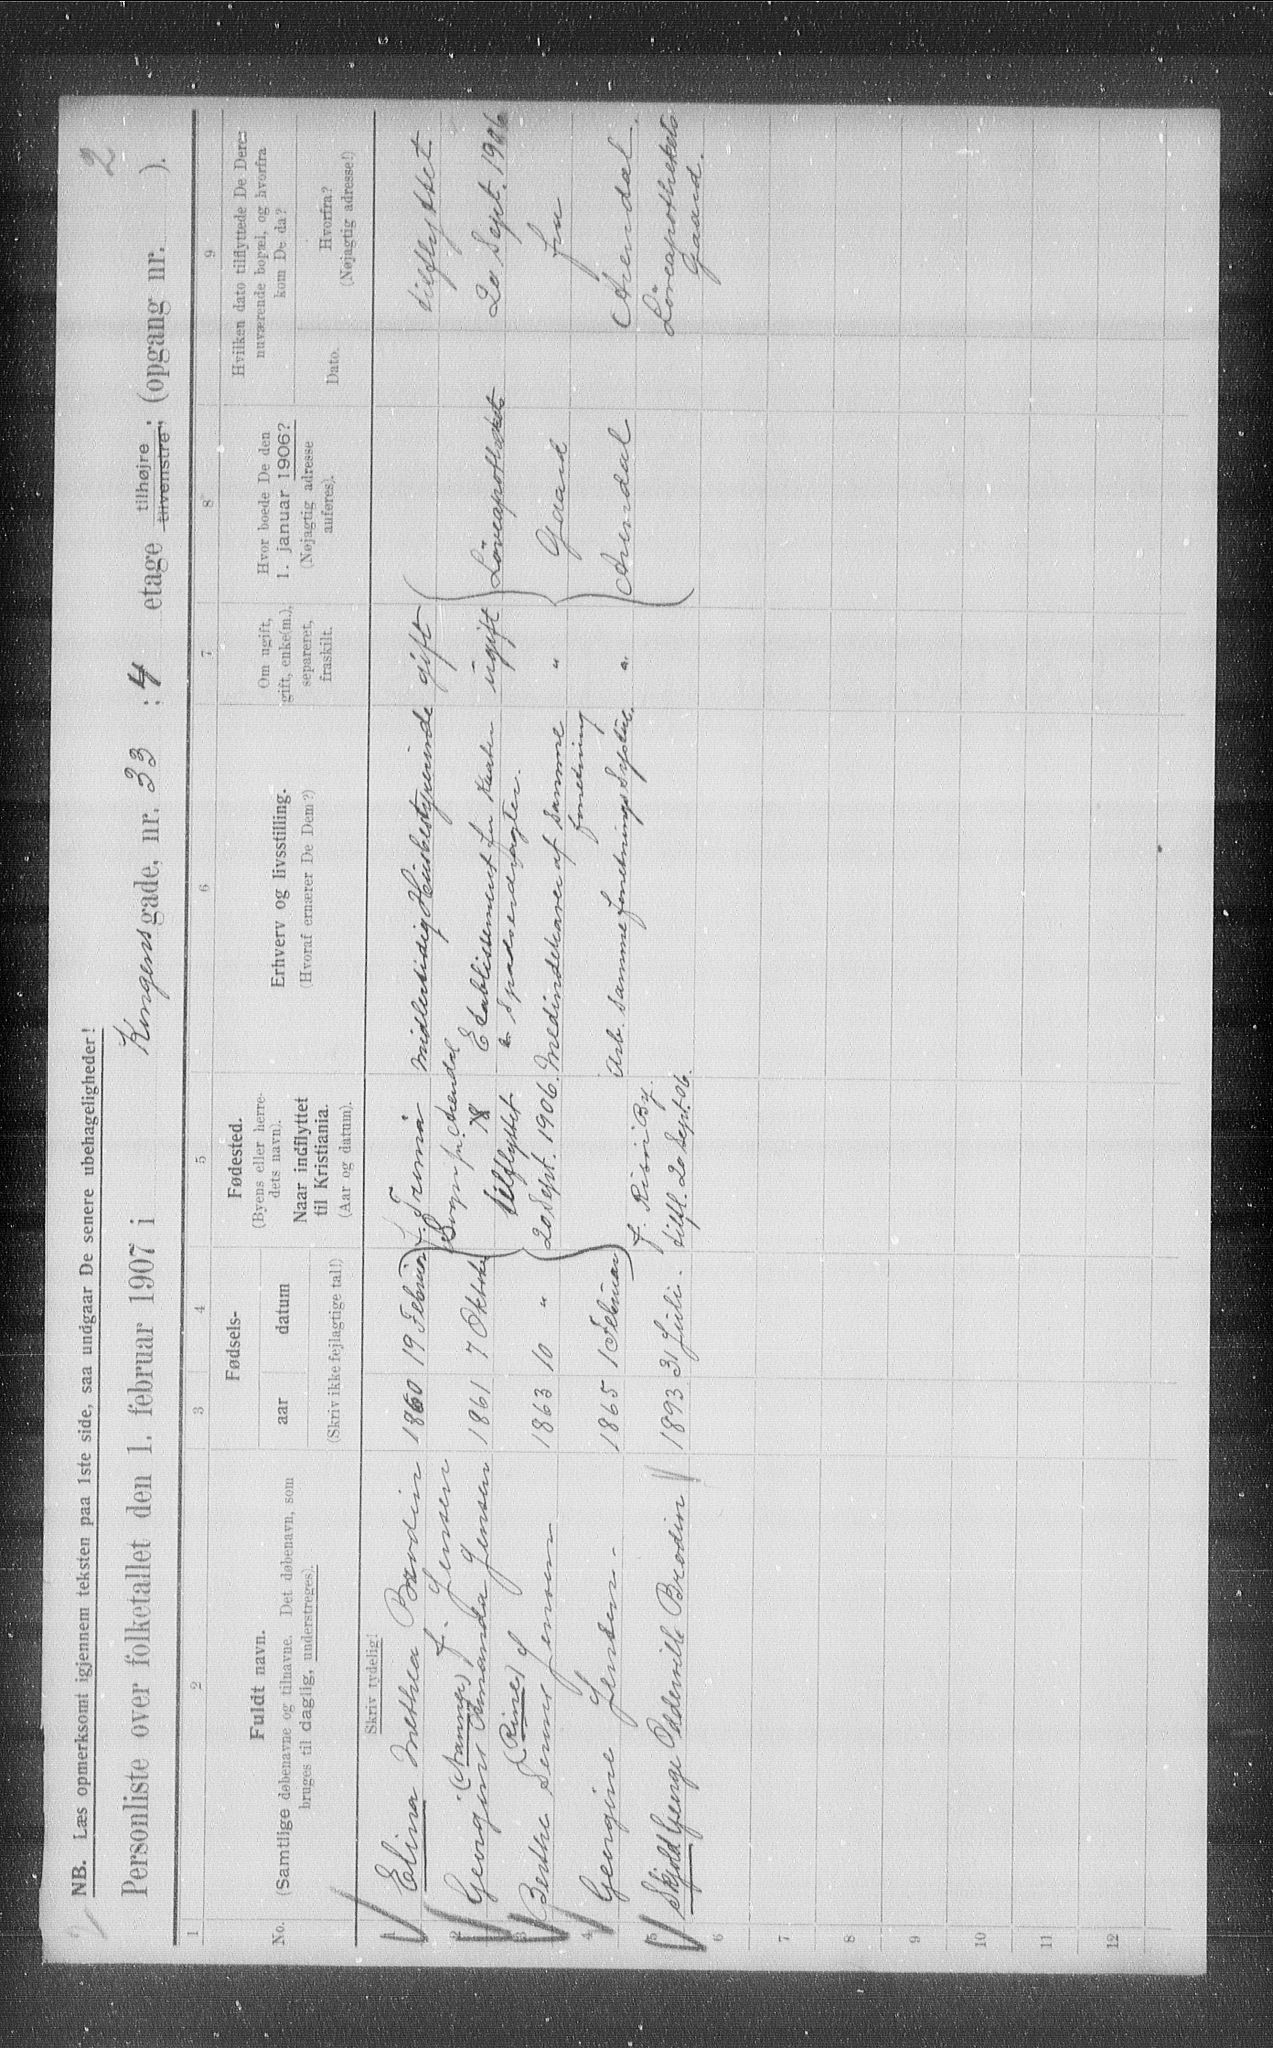 2
NB. Læs opmerksomt igjennem teksten paa 1ste side, saa undgaar De senere ubehageligheder!
Personliste over folketallet den 1. februar 1907 i Kongens gade, nr. 33 : 4 etage tilhøjre ; (opgang nr. ).
tilvenstre,
1 2 3 4 5 6 7 8 9
No.
Fuldt navn.
(Samtlige døbenavne og tilnavne. Det døbenavn, som
bruges til daglig, understreges).
Fødsels-
aar datum
(Skriv ikke fejlagtige tal!)
Fødested.
(Byens eller herre-
dets navn).
Naar indflyttet
til Kristiania.
(Aar og datum).
Erhverv og livsstilling.
(Hvoraf ernærer De Dem?)
Om ugift,
gift, enke(m.),
separeret,
fraskilt.
Hvor boede De den
1. januar 1906?
(Nøjagtig adresse
anføres).
Hvilken dato tilflyttede De Deres
nuværende bopæl, og hvorfra
kom De da?
Dato.
Hvorfra?
(Nøjagtig adresse!)
Skriv tydelig!
1 Elina Methea Brodin 1860 19 Februar f. Tromø midlertidig Husbestyrerinde gift tilflyttet
f. Jensen Sogn pr. Arendal
2 Georgine Amanda Jensen 1861 7 Oktober tilflyttet Etablissement for ugift Løveapothekets 20 Sept. 1906
3 Berthe Jensen 1863 10 " 20 Sept. 1906. Medindehaver af samme " Gaard fra
forretning
4 Georgine Jensen. 1865 1 Februar Arb. samme forretnings Systue. " Arendal Arendal.
5 Skjold George Brodin 1893 31 Juli. f. Risør By. Løveapothekets
tilfl. 20 Sept. 06. Gaard.
6
7
8
9
10
11
12